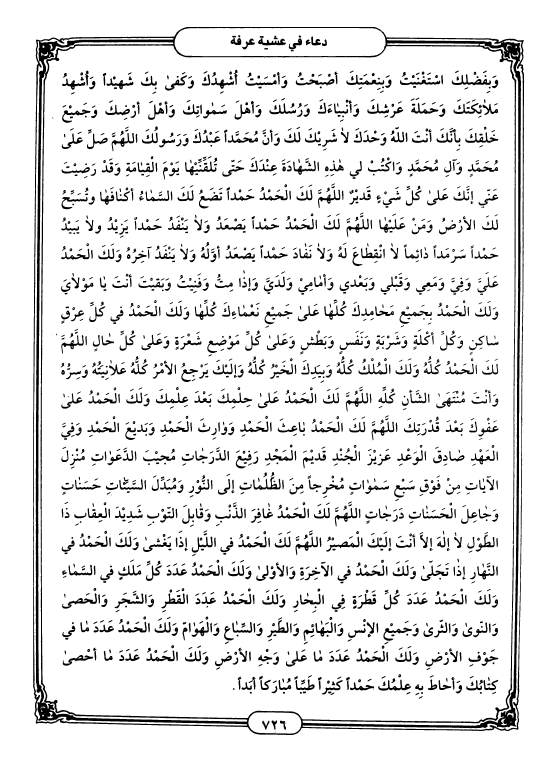 دعاء في عشية عرفة
وَبِفَضْلِكَ اسْتَغْنَيْتُ وَبِنِعْمَتِكَ أصْبَحْتُ وَأمْسَيْتُ اُشْهِدُكَ وَكَفىٰ بِكَ شَهيْداً وَاُشْهِدُ
مَلاٰئِكَتَكَ وَحَمَلَةَ عَرْشِكَ وَأنْبِيٰاءَكَ وَرُسُلَكَ وَأهْلَ سَمٰوٰاتِكَ وَأهْلَ أرْضِكَ وَجَميْعَ
خَلْقِكَ بِأنَّكَ أنْتَ اللهُ وَحْدَكَ لاٰ شَريْكَ لَكَ وَأنَّ مُحَمَّداً عَبْدُكَ وَرَسُولُكَ اللّهُمَّ صَلِّ عَلىٰ
مُحَمَّدٍ وَآلِ مُحَمَّدٍ وَاكْتُبْ لي هٰذِهِ الشَّهٰادَةَ عِنْدَكَ حَتّىٰ تُلَقِّنِّيْهٰا يَوْمَ الْقِيٰامَةِ وَقَدْ رَضِيْتَ
عَنّي إنَّكَ عَلىٰ كُلِّ شَيْءٍ قَديْرٌ اللّهُمَّ لَكَ الْحَمْدُ حَمْداً تَضَعُ لَكَ السَّمٰاءُ أكْنٰافَهٰا وتُسَبِّحُ
لَكَ الأرْضُ وَمَنْ عَلَيْهٰا اللّهُمَّ لَكَ الْحَمْدُ حَمْداً يَصْعَدُ وَلاٰ يَنْفَدُ حَمْداً يَزيْدُ ولاٰ يَبيْدُ
حَمْداً سَرْمَداً دٰائِماً لاٰ انْقِطٰاعَ لَهُ وَلاٰ نَفٰادَ حَمْداً يَصْعَدُ أوَّلُهُ وَلاٰ يَنْفَدُ آخِرُهُ وَلَكَ الْحَمْدُ
عَلَيَّ وَفِيَّ وَمَعي وَقَبْلي وَبَعْدي وَأمٰامي وَلَدَيَّ وَإذٰا مِتُّ وَفَنِيْتُ وَبَقيْتَ أنْتَ يٰا مَوْلاٰيَ
وَلَكَ الْحَمْدُ بِجَميْعِ مَحٰامِدِكَ كُلِّهٰا عَلىٰ جَميْعِ نَعْمٰاءِكَ كُلِّهٰا وَلَكَ الْحَمْدُ في كُلِّ عِرْقٍ
سٰاكِنٍ وَكُلِّ أكْلَةٍ وَشَرْبَةٍ وَنَفَسٍ وَبَطْشٍ وَعَلىٰ كُلِّ مَوْضِعِ شَعْرَةٍ وَعَلىٰ كُلِّ حٰالٍ اللّهُمَّ
لَكَ الْحَمْدُ كُلُّهُ وَلَكَ الْمُلْكُ كُلُّهُ وَبِيَدِكَ الْخَيْرُ كُلُّهُ وَإلَيْكَ يَرْجِعُ الأمْرُ كُلُّهُ عَلاٰنِيَتُهُ وَسِرُّهُ
وَأنْتَ مُنْتَهىٰ الشَّأنِ كُلِّهِ اللّهُمَّ لَكَ الْحَمْدُ عَلىٰ حِلْمِكَ بَعْدَ عِلْمِكَ وَلَكَ الْحَمْدُ عَلىٰ
عَفْوِكَ بَعْدَ قُدْرَتِكَ اللّهُمَّ لَكَ الْحَمْدُ بٰاعِثَ الْحَمْدِ وَوٰارِثَ الْحَمْدِ وَبَديْعَ الْحَمْدِ وَفِيَّ
الْعَهْدِ صٰادِقَ الْوَعْدِ عَزيْزَ الْجُنْدِ قَديْمَ الْمَجْدِ رَفيْعَ الدَّرَجٰاتِ مُجيْبَ الدَّعَوٰاتِ مُنْزِلَ
الآيٰاتِ مِنْ فَوْقِ سَبْعِ سَمٰوٰاتٍ مُخْرِجاً مِنَ الظُّلُمٰاتِ إلَى النُّوْرِ وَمُبَدِّلَ السَّيِّئٰاتِ حَسَنٰاتٍ
وَجٰاعِلَ الْحَسَنٰاتِ دَرَجٰاتٍ اللّهُمَّ لَكَ الْحَمْدُ غٰافِرَ الذَّنْبِ وَقٰابِلَ التَّوْبِ شَديْدَ الْعِقٰابِ ذَا
الطَّوْلِ لاٰ إلٰهَ إلاّٰ أنْتَ إلَيْكَ الْمَصيْرُ اللّهُمَّ لَكَ الْحَمْدُ في اللَّيْلِ إذٰا يَغْشىٰ وَلَكَ الْحَمْدُ في
النَّهٰارِ إذٰا تَجَلّىٰ وَلَكَ الْحَمْدُ في الآخِرَةِ وَالأوْلىٰ وَلَكَ الْحَمْدُ عَدَدَ كُلِّ مَلَكٍ في السَّمٰاءِ
وَلَكَ الْحَمْدُ عَدَدَ كُلِّ قَطْرَةٍ فِي الْبِحٰارِ وَلَكَ الْحَمْدُ عَدَدَ الْقَطْرِ وَالشَّجَرِ وَالْحَصىٰ
وَالنَّوىٰ وَالثَّرىٰ وَجَميْعِ الإنْسِ وَالْبَهٰائِمِ وَالطَّيْرِ وَالسِّبٰاعِ وَالْهَوٰامِّ وَلَكَ الْحَمْدُ عَدَدَ مٰا في
جَوْفِ الأرْضِ وَلَكَ الْحَمْدُ عَدَدَ مٰا عَلىٰ وَجْهِ الأرْضِ وَلَكَ الْحَمْدُ عَدَدَ مٰا أحْصىٰ
كِتٰابُكَ وَأحٰاطَ بِهِ عِلْمُكَ حَمْداً كَثيْراً طَيِّباً مُبٰارَكاً أبَداً.
٧٢٦